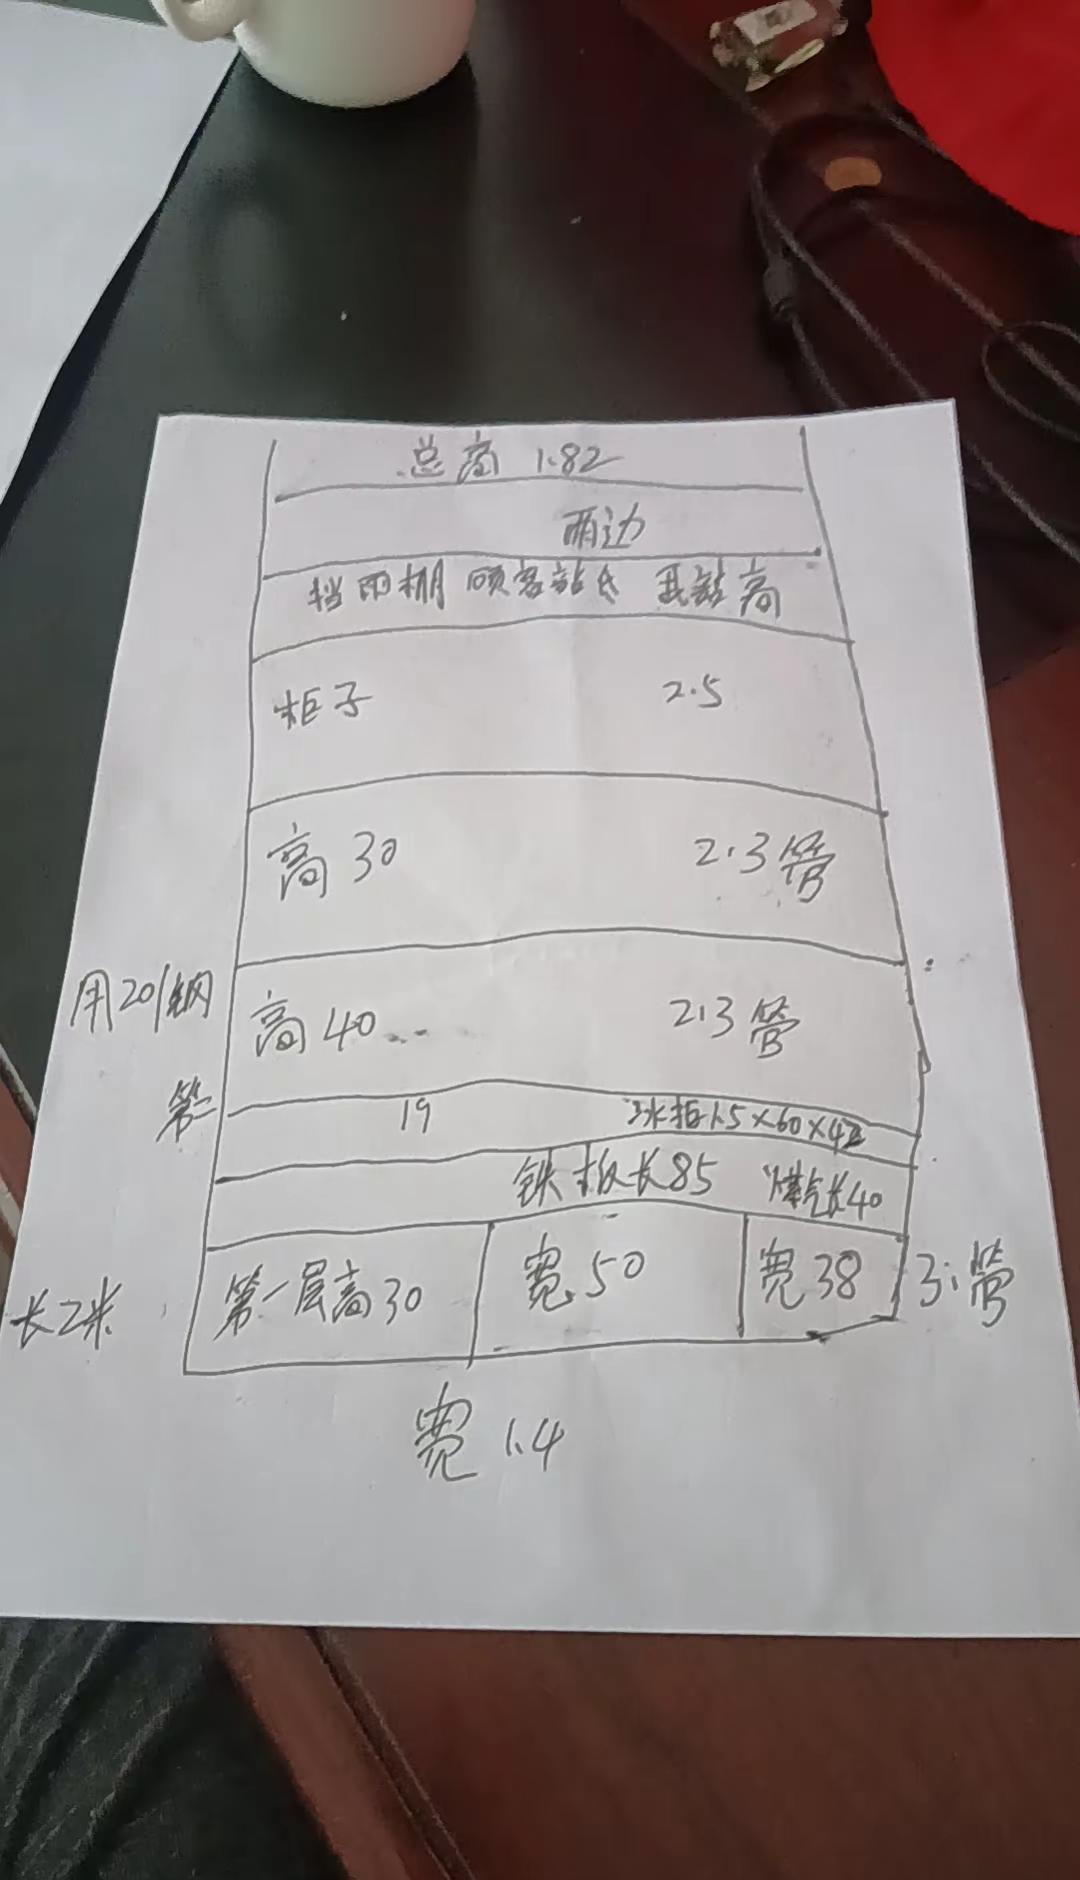 总高 1.82
两边
挡雨棚 顾客站低 我站高
柜子 2.5
高30 2.3管
用201钢
高40 2.3管
第二
19 冰柜1.5×60×42
铁板长85 煤气长40
第一层高30 宽50 宽38 3:管
长2米
宽 1.4